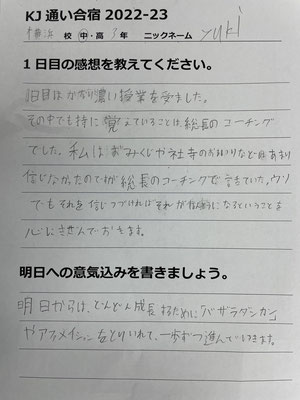 KJ 通い合宿 2022-23
横浜 校 中・高 年 ニックネーム yuki
1日目の感想を教えてください。
1日目はかなり濃い授業を受けました。
その中でも特に覚えていることは総長のコーチング
でした。私はおみくじや社寺のお参りなどはあまり
信じなかったのですが総長のコーチングで言っていた、ウソ
でもそれを信じつづければそれが になるということを
心にきざんでおきます。
明日への意気込みを書きましょう。
明日からは、どんどん成長するために「バザラダンカン」
やアファメイションをとりいれて、一歩ずつ進んでいきます。